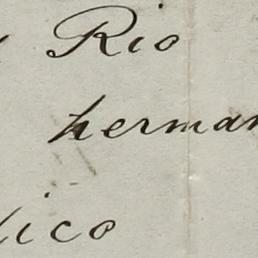 Rio
herman
lico